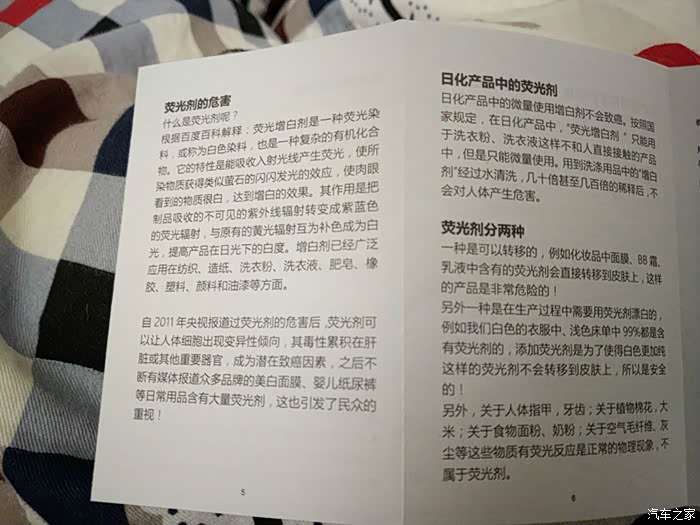 荧光剂的危害
什么是荧光剂呢？
根据百度百科解释：荧光增白剂是一种荧光染
料，或称为白色染料，也是一种复杂的有机化合
物。它的特性是能吸收入射光线产生荧光，使所
染物质获得类似萤石的闪闪发光的效应，使肉眼
看到的物质很白，达到增白的效果。其作用是把
制品吸收的不可见的紫外线辐射转变成紫蓝色
的荧光辐射，与原有的黄光辐射互为补色成为白
光，提高产品在日光下的白度。增白剂已经广泛
应用在纺织、造纸、洗衣粉、洗衣液、肥皂、橡
胶、塑料、颜料和油漆等方面。
自2011年央视报道过荧光剂的危害后，荧光剂可
以让人体细胞出现变异性倾向，其毒性累积在肝
脏或其他重要器官，成为潜在致癌因素，之后不
断有媒体报道众多品牌的美白面膜、婴儿纸尿裤
等日常用品含有大量荧光剂，这也引发了民众的
重视！
5
日化产品中的荧光剂
日化产品中的微量使用增白剂不会致癌，按照国
家规定，在日化产品中，“荧光增白剂 ”只能用
于洗衣粉、洗衣液这样不和人直接接触的产品
中，但是只能微量使用。用到洗涤用品中的“增白
剂”经过水清洗，几十倍甚至几百倍的稀释后，不
会对人体产生危害。
荧光剂分两种
一种是可以转移的，例如化妆品中面膜、BB 霜、
乳液中含有的荧光剂会直接转移到皮肤上，这样
的产品是非常危险的！
另外一种是在生产过程中需要用荧光剂漂白的，
例如我们白色的衣服中、浅色床单中99%都是含
有荧光剂的，添加荧光剂是为了使得白色更加纯
这样的荧光剂不会转移到皮肤上，所以是安全
的！
另外，关于人体指甲，牙齿；关于植物棉花，大
米；关于食物面粉、奶粉；关于空气毛纤维、灰
尘等这些物质有荧光反应是正常的物理现象，不
属于荧光剂。
6
汽车之家